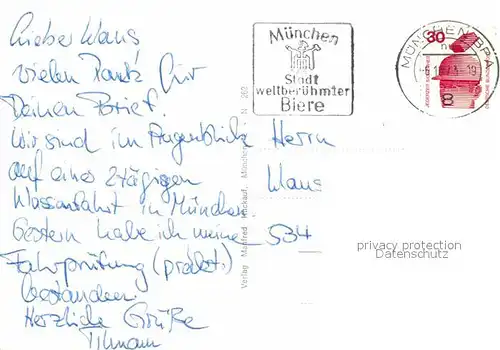 Lieber Klaus
vielen Dank für
Deinen Brief.
Wir sind im Augenblick
auf einer 2tägigen
Klassenfahrt in München.
Gestern habe ich meine
Fahrprüfung (prakt.)
bestanden.
Herzliche Grüße
Tilmann
München
Stadt
weltberühmter
Biere
MÜNCHEN BPA
30
Herrn
Klaus
534
privacy protection
Datenschutz
Verlag Manfred Mückauf, München
N 262